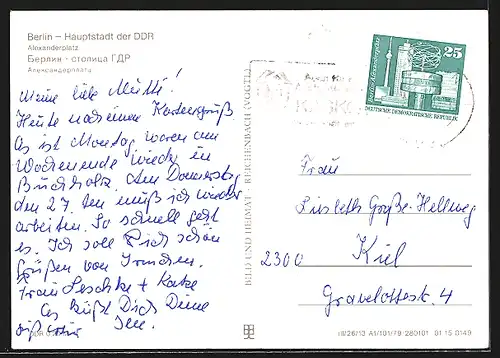 Berlin – Hauptstadt der DDR
Alexanderplatz
Берлин · столица ГДР
Александерплатц
Meine liebe Mutti!
Heute nur einen Kartengruß
Es ist Montag, waren am
Wochenende wieder in
Buchholz. Am Donnerstg
den 27. ten muß ich wieder
arbeiten. So schnell geht
es. Ich soll Dich schön
Grüßen von
Frau Leschke + Katze
Es küßt Dich Deine
BILD UND HEIMAT REICHENBACH (VOGTL)
25
DEUTSCHE DEMOKRATISCHE REPUBLIK
Frau
Liesleth Große-Hellweg
2300 Kiel
Gravelottestr. 4
III/26/13 A1/101/79 280101 01 15 0149